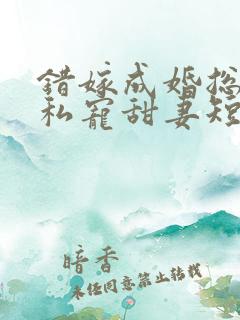 错嫁成婚总
私宠甜妻短
暗香
未经同意禁止转载